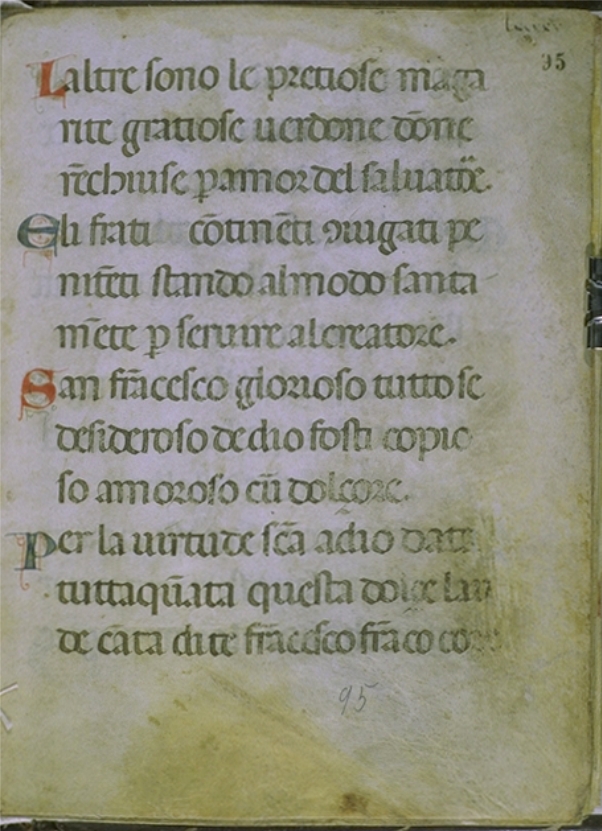 95
Laltre sono le pretiose maga
rite gratiose uerdone dōne
rēchiuse p̄ amor del saluatōe.
Eli frati cōtinēti ɔiugati pe
nitēti stando almodo santa
mēte p̄ seruire alcreatore.
San frācesco glorioso tutto se
desideroso dedio fosti copio
so amoroso cū dolçore.
Per la uirtude scā adio data
tuttaquāta questa dolçe lau
de cāta di te frācesco frāco co
95